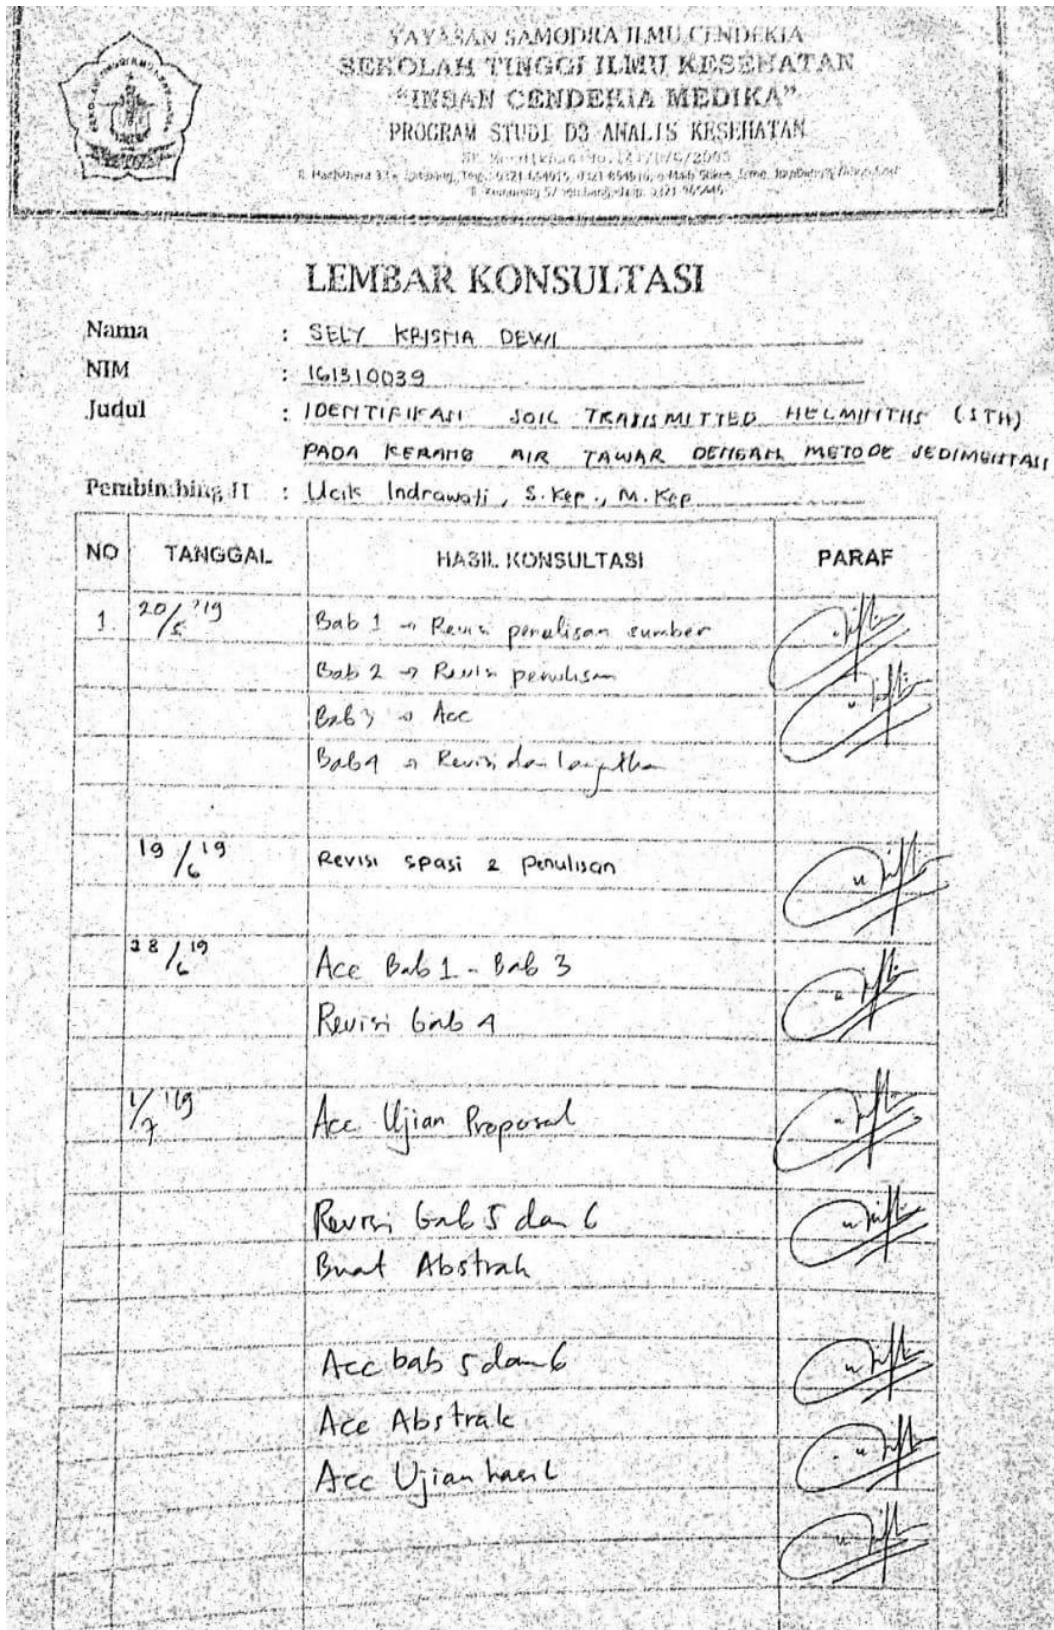 YAYASAN SAMODRA ILMU CENDEKIA
SEKOLAH TINGGI ILMU KESEHATAN
"INSAN CENDEKIA MEDIKA"
PROGRAM STUDI D3 ANALIS KESEHATAN
LEMBAR KONSULTASI
Nama : SELY KRISMA DEWI
NIM : 161310039
Judul : IDENTIFIKASI SOIL TRANSMITTED HELMINTHS (STH)
PADA KERANG AIR TAWAR DENGAN METODE SEDIMENTASI
Pembimbing II : Ucik Indrawati, S.Kep., M.Kep
NO TANGGAL HASIL KONSULTASI PARAF
1. 20/5 '19 Bab 1 → Revisi penulisan sumber
Bab 2 → Revisi penulisan
Bab 3 → Acc
Bab 4 → Revisi dan lanjutkan
19/6 '19 Revisi spasi & penulisan
28/6 '19 Acc Bab 1 - Bab 3
Revisi bab 4
1/7 '19 Acc Ujian Proposal
Revisi bab 5 dan 6
Buat Abstrak
Acc bab 5 dan 6
Acc Abstrak
Acc Ujian hasil